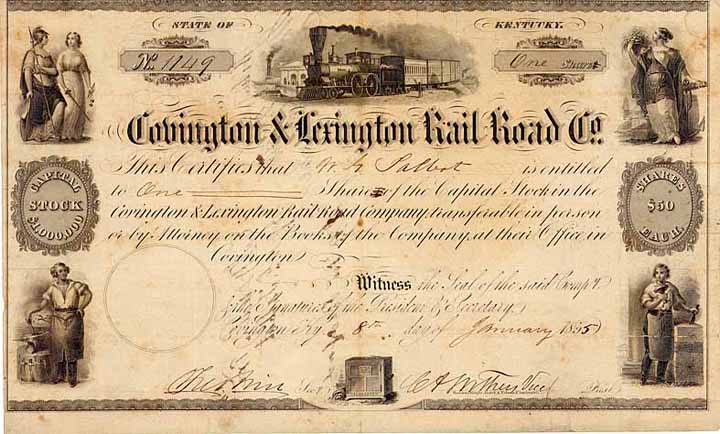 STATE OF KENTUCKY.
No. 1149
One Share
Covington & Lexington Rail Road Co.
This Certifies that W. Talbot is entitled
to One Shares of the Capital Stock in the
Covington & Lexington Rail Road Company, transferable in person
or by Attorney, on the Books of the Company, at their Office in
Covington
CAPITAL
STOCK
$1,000,000
SHARES
$50
EACH.
Witness the Seal of the said Comp'y.
& the Signatures of the President & Secretary
Covington Ky 8th day of January 1855
Sec.
Pres.